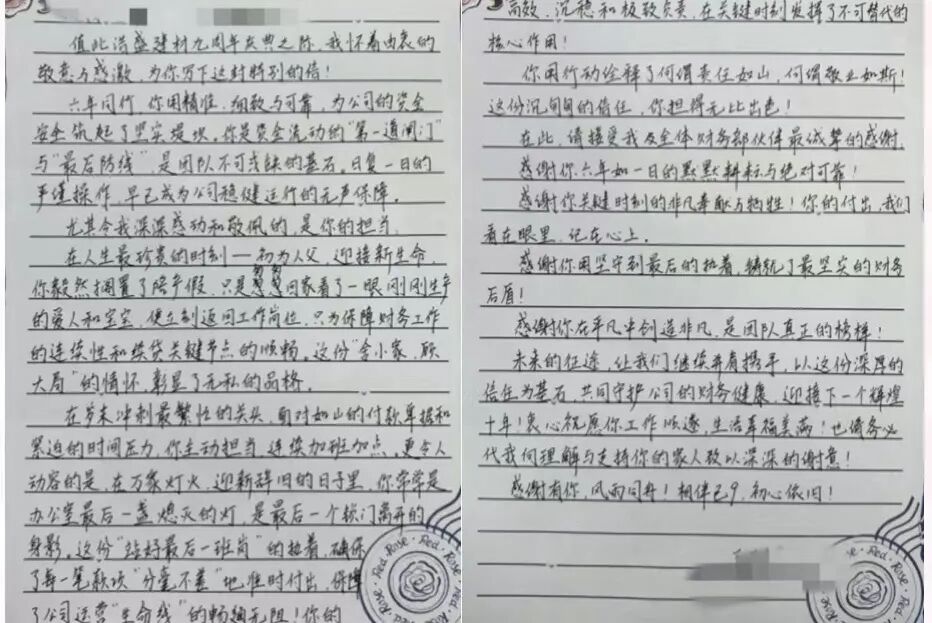 值此浩盛建材九周年庆典之际，我怀着由衷的
敬意与感激，为你写下这封特别的信！
六年同行，你用精准、细致与可靠，为公司的资金
安全筑起了坚实堤坝。你是资金流动的“第一道闸门”
与“最后防线”，是团队不可或缺的基石。日复一日的
严谨操作，早已成为公司稳健运行的无声保障。
尤其令我深深感动和敬佩的，是你的担当。
在人生最珍贵的时刻——初为人父，迎接新生命，
你毅然搁置了陪产假，只是匆匆回家看了一眼刚刚生产
的爱人和宝宝，便立刻返回工作岗位，只为保障财务工作
的连续性和续贷关键节点的顺畅。这份“舍小家，顾
大局”的情怀，彰显了无私的品格。
在岁末冲刺最繁忙的关头，面对如山的付款单据和
紧迫的时间压力，你主动担当，连续加班加点，更令人
动容的是，在万家灯火，迎新辞旧的日子里，你常常是
办公室最后一盏熄灭的灯，是最后一个锁门离开的
身影。这份“站好最后一班岗”的执着，确保
了每一笔款项“分毫不差”地准时付出，保障
了公司运营“生命线”的畅通无阻！你的
高效、沉稳和极致负责，在关键时刻发挥了不可替代的
核心作用！
你用行动诠释了何谓责任如山，何谓敬业如斯！
这份沉甸甸的信任，你担得无比出色！
在此，请接受我及全体财务部伙伴最诚挚的感谢，
感谢你六年如一日的默默耕耘与绝对可靠！
感谢你关键时刻的非凡奉献与牺牲！你的付出，我们
看在眼里，记在心上。
感谢你用坚守到最后的执着，铸就了最坚实的财务
后盾！
感谢你在平凡中创造非凡，是团队真正的榜样！
未来的征途，让我们继续并肩携手，以这份深厚的
信任为基石，共同守护公司的财务健康，迎接下一个辉煌
十年！衷心祝愿你工作顺遂，生活幸福美满！也请务必
代我向理解与支持你的家人致以深深的谢意！
感谢有你，风雨同舟！相伴已9，初心依旧！
Red Rose · Red Rose
Rose · Red · Rose · Red